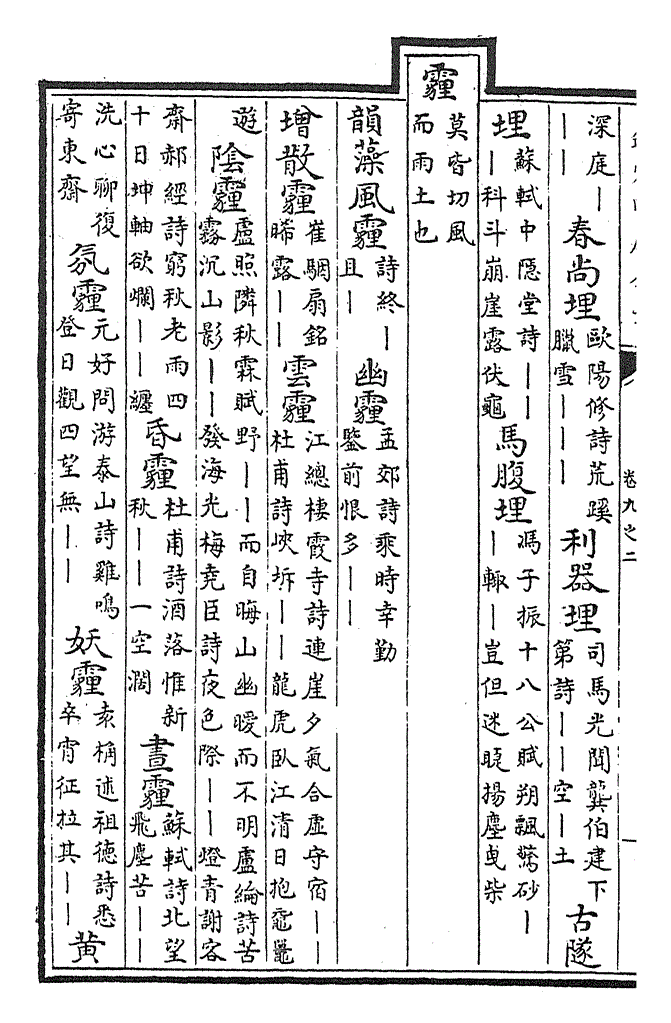 深庭｜
｜｜
春尚埋
歐陽修詩荒蹊
臘雪｜｜｜
利器埋
司馬光聞龔伯建下
第詩｜｜空｜土
古隧
埋
蘇軾中隱堂詩｜｜
｜科斗崩崖露伏龜
馬腹埋
馮子振十八公賦朔飄驚砂｜
｜輙｜豈但迷瞍揚塵曵柴
霾
莫皆切風
而雨土也
韻藻風霾
詩終｜
且｜
幽霾
孟郊詩乘時幸勤
鑒前恨多｜｜
增散霾
崔駰扇銘
晞露｜｜
雲霾
江總棲霞寺詩連崖夕氣合虛守宿｜｜
杜甫詩峽坼｜｜龍虎臥江清日抱黿鼉
遊
陰霾
盧照隣秋霖賦野｜｜而自晦山幽曖而不明盧綸詩苦
霧沉山影｜｜發海光梅堯臣詩夜色際｜｜燈青謝客
齋郝經詩窮秋老雨四
十日坤軸欲爛｜｜纏
昏霾
杜甫詩酒落惟新
秋｜｜一空濶
晝霾
蘇軾詩北望
飛塵苦｜｜
洗心聊復
寄東齋
氛霾
元好問游泰山詩雞鳴
登日觀四望無｜｜
妖霾
袁桷述祖德詩悉
卒宵征拉其｜｜
黄
卷九之二